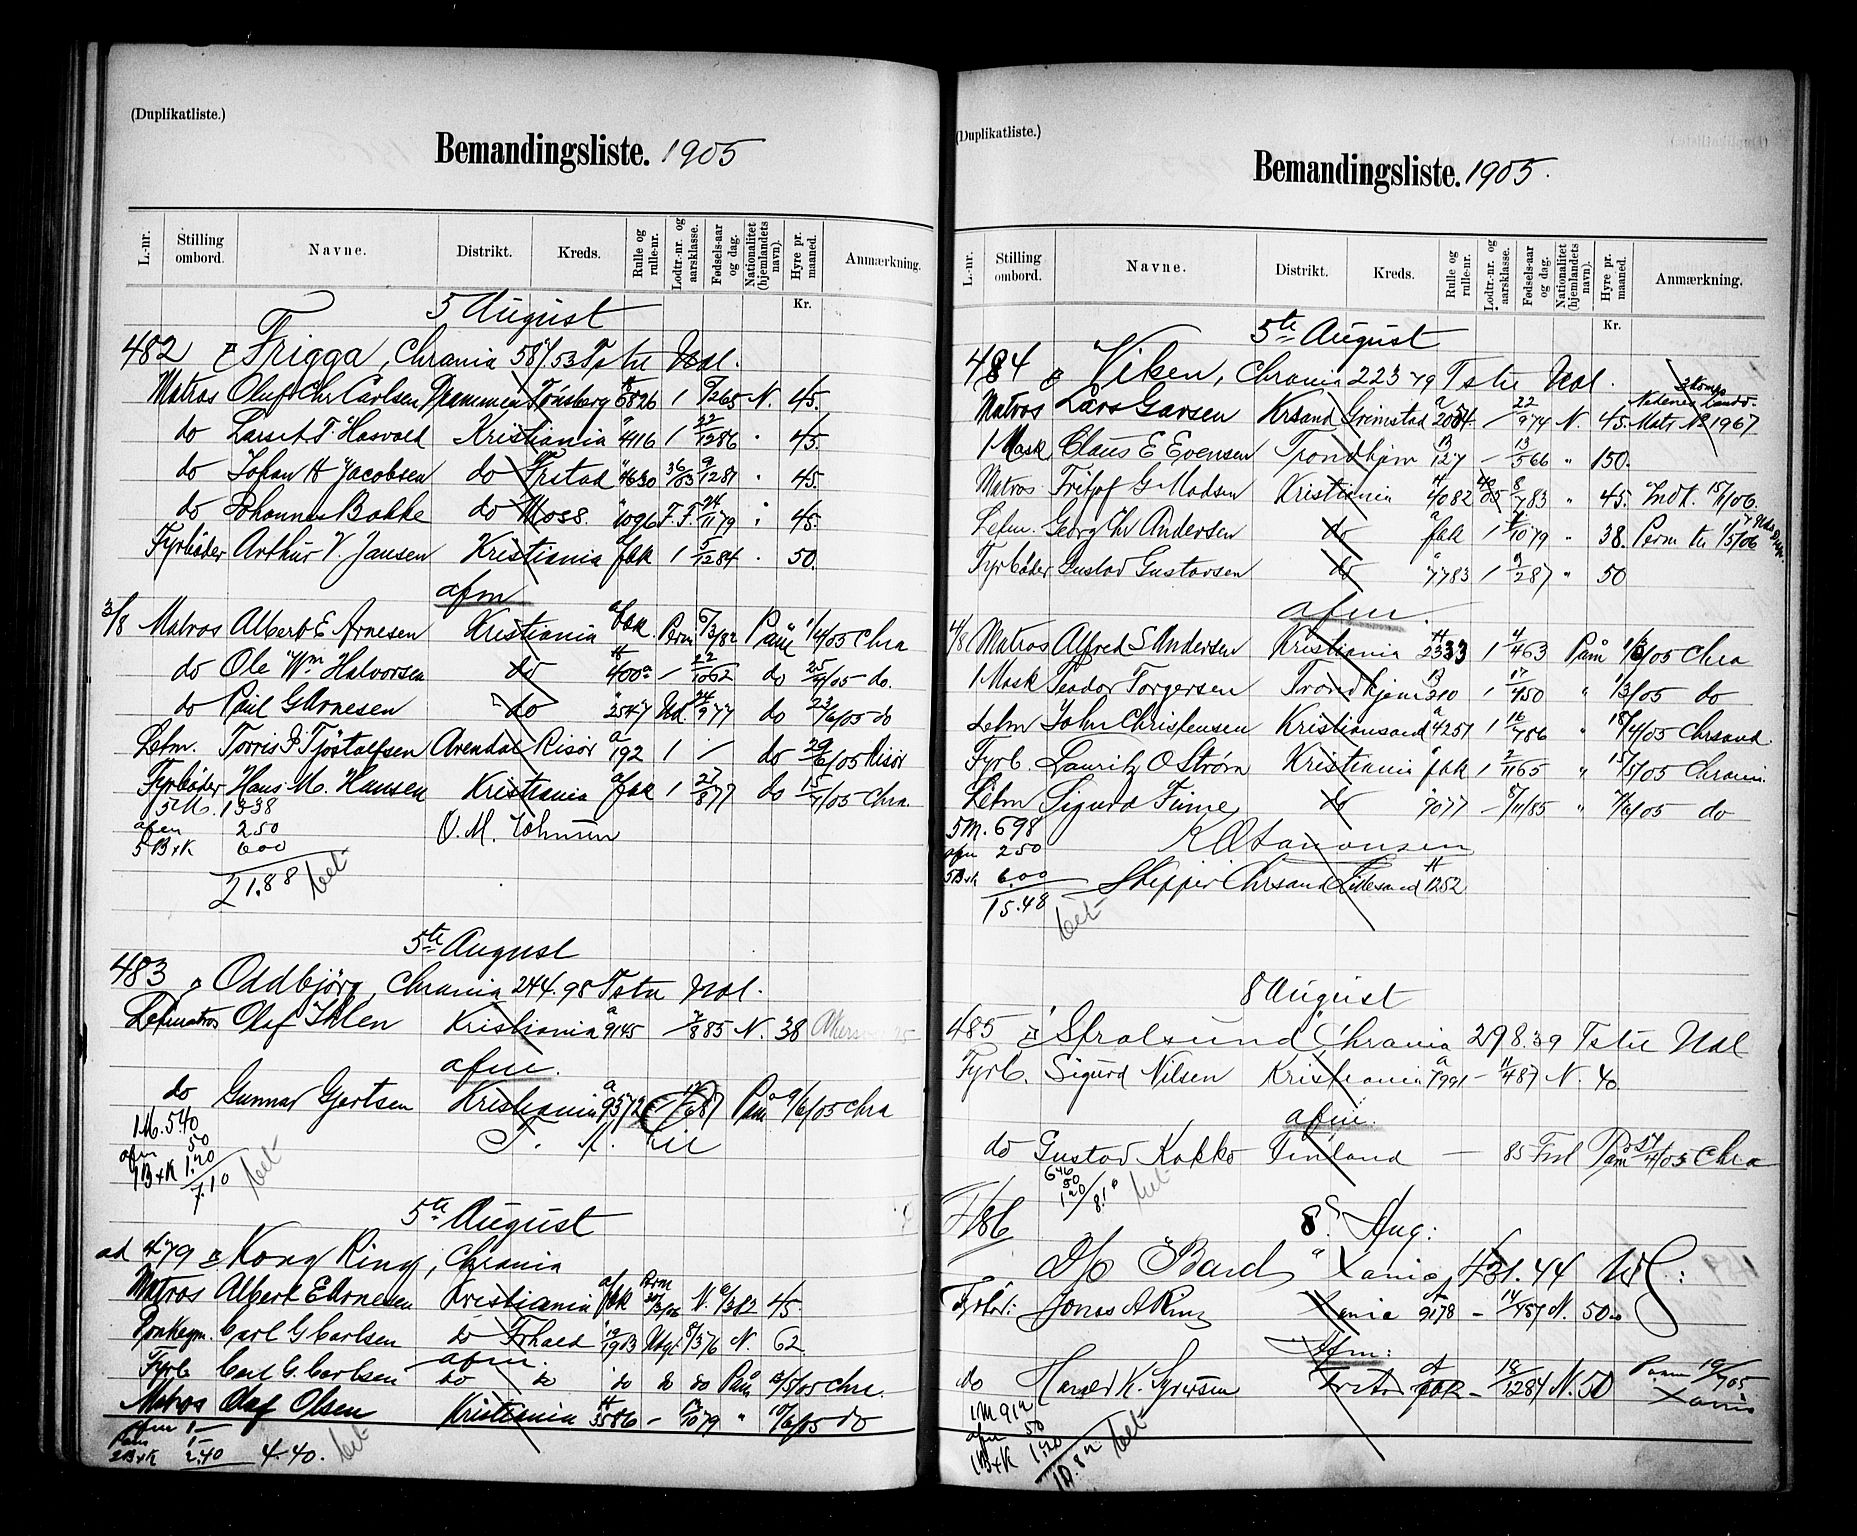 (Duplikatliste.)
Bemandingsliste. 1905
L.-nr. Stilling ombord. Navne. Distrikt. Kreds. Rulle og rulle-nr. Lodtr.-nr. og aarsklasse. Fødsels-aar og dag. Nationalitet (hjemlandets navn). Hyre pr. maaned. Anmærkning.
Kr.
5 August
482 Frigga, Chrania 587/53 Tstu Nol.
Matros Oluf Chr Carlsen Drammen Tønsberg 6826 1 N. 45.
do Kristiania 4116 1 22/1286 " 45.
do Johan A Jacobsen do Frstad 4630 36/03 9/1281 " 45.
do Johannes Bakke do Moss. 1096 F.F. 24/1179 " 45.
Fyrbøder Arthur V. Jansen Kristiania fak 1 5/1284 " 50.
afm
3/8 Matros Albert E Arnesen Kristiania fak. Perm 6/3/82 Påm 1/4/05 Chra
do Ole Wm Halvorsen do 400 - 22/1062 do 25/4/05 do.
do Paul G Arnesen do 2547 24/977 do 23/6/05 do
Letm. Torris P Tjøstolfsen Arendal Risør 192 1 - do 29/6/05 Risør
Fyrbøder Hans M. Hansen Kristiania fak 1 27/877 do 15/4/05 Chra.
5 M. 13.38
afm 250
5 B+K 600
O. M. Johnsen
21.88 bet
5te August
483 Oddbjörg, Chrania 244.98 Tstu Nol.
Letmatros Olaf Ihlen Kristiania 9145 - 7/885 N. 38
afm.
do Gunnar Gjertsen Kristiania 9572 Påm 9/6/05 Chra
1 M. 5.40
afm 50
1 B+K 1.20
7.10 bet
5te August
ad 479 Kong Ring, Chrania
Matros Albert E Arnesen Kristiania fak Perm N. 6/382 45.
Donkeym. Carl G Carlsen do Frhald 19/1903 Udgl 8/376 N. 62.
afm.
Fyrb Carl G. Carlsen do do do do do Påm 12/5/05 Chra.
Matros Olaf Olsen Kristiania 3586 - 12/1079 " 10/6/05 do
afm 1-
Påm 1-
2 B+K 2.40
4.40. bet
(Duplikatliste.)
Bemandingsliste. 1905.
L.-nr. Stilling ombord. Navne. Distrikt. Kreds. Rulle og rulle-nr. Lodtr.-nr. og aarsklasse. Fødsels-aar og dag. Nationalitet (hjemlandets navn). Hyre pr. maaned. Anmærkning.
Kr.
5te August
484 Viken, Chrania 223.79 Tstu Nol.
2 komp Nedenes Landv.
Matros Lars Garsen Krsand Grimstad 2084 - 22/974 N. 45. Matr No 1967
1 Mask Claus E Evensen Trondhjem 127 1 13/566 " 150.
Matros Fritjof G Madsen Kristiania 4082 40/05 8/783 " 45. Indk. 15/1 06.
Letm. Georg Chr Andersen do fak 1 1079 " 38. Perm til 1/5/06
Fyrbøder Gustav Gustavsen do 7783 1 9/287 " 50
afm.
4/8 Matros Alfred S Andersen Kristiania 2333 1 4/463 Påm 1/6/05 Chra
1 Mask Teodor Torgersen Trondhjem 210 1 17/450 " 1/3/05 do
Letm John Christensen Kristiansand 4251 1 16/786 " 18/4/05 Chrsand.
Fyrb. Lauritz O Strøm Kristiania fak 1 2/1165 " 15/5/05 Chrania.
Letm Sigurd Finne do 7077 - 8/11/85 " 7/6/05 do
5 M. 6 98
afm 250
5 B+K 6.00
15.48 bet
Skipper Chrsand Lillesand 1252
8 August
485 "Stralsund" Chrania 298.39 Tstu Nol
Fyrb. Sigurd Nilsen Kristiania 7991 - 11/487 N. 40
afm.
do Gustav Kokko Finland - 85 Finl Påm 27/4/05 Chra
646
50
120
8.16 bet
486
8 Aug:
D/S "Bard" Xania, 431.44
Fyrbød: Jonas A Ring Xania 9178 - 14/487 N. 50.00
Afm:
do Harald K. Syversen fak - 18/1284 N. 50 Paam 19/705 Xania
1 M 912
afm 50
1 B+K 1.20
10.82 bet